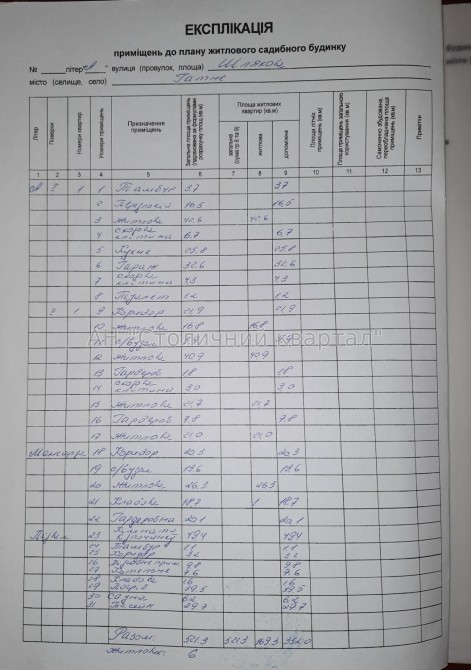 ЕКСПЛІКАЦІЯ
приміщень до плану житлового садибного будинку
№ літер "А" вулиця (провулок, площа) Шляхова
місто (селище, село) Гатне
Літер Поверхи Номери квартир Номери приміщень Призначення приміщень Загальна площа приміщень (підрахована за формулами розрахунку площ) (кв.м) Площа житлових квартир (кв.м) загальна (сума гр. 8 та 9) житлова допоміжна Площа літніх приміщень (кв.м) Площа приміщень загального користування (кв.м) Самочинно збудована, переобладнана площа приміщень (кв.м) Примітки
1 2 3 4 5 6 7 8 9 10 11 12 13
А 1 1 Тамбур 3.7 3.7
2 16.5 16.5
3 Житлова 40.6 40.6
4 Сходова клітина 6.7 6.7
5 Кухня 25.8 25.8
6 Гараж 32.6 32.6
7 Сходова клітина 4.3 4.3
8 Туалет 1.2 1.2
2 1 9 Коридор 21.9 21.9
10 Житлова 16.8 16.8
11 С/вузол
12 Житлова 40.9 40.9
13 Гардероб 1.8 1.8
14 Сходова клітина 3.0 3.0
15 Житлова 21.7 21.7
16 Гардероб 7.8 7.8
17 Житлова 21.0 21.0
АН "Столичний квартал"
Мансарда 18 Коридор 20.3 20.3
19 С/вузол 13.6 13.6
20 Житлова 26.3 26.3
21 Кладова 18.7 18.7
22 Гардеробна 20.1 20.1
Підвал 23 Кімната відпочинку 49.4 49.4
24 Тамбур 1.1 1.1
25 Коридор 3.2 3.2
26 9.8 9.8
27 Котельня 7.6 7.6
28 Кладова 16 16
29 39.5 39.5
30 Сауна 6.2 6.2
31 Басейн 29.7 29.7
Разом: 521.3 521.3 169.3 352.0
житлових: 6